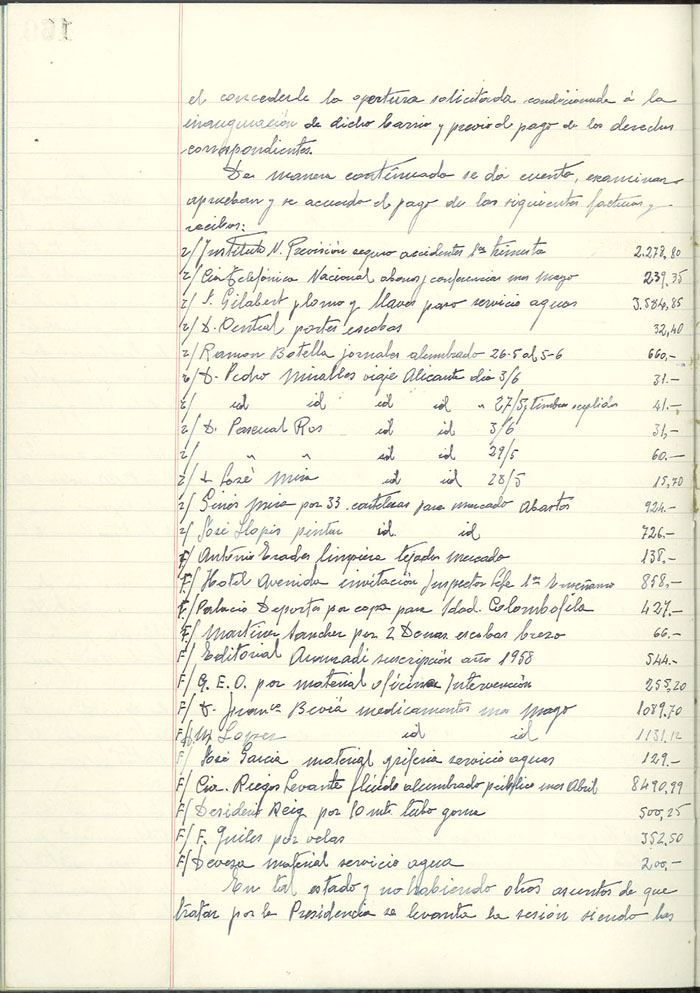 el concederle la apertura solicitada condicionada á la
inauguración de dicho barrio y previo el pago de los derechos
correspondientes.
De manera continuada se dá cuenta, examinan
aprueban y se acuerda el pago de las siguientes facturas y
recibos:
r/ Instituto N. Previsión seguro accidentes 1er trimestre 2.278,80
r/ Cia Telefónica Nacional abonos y conferencias mes mayo 239,35
r/ S. Gilabert plomo y llaves para servicio aguas 3.584,85
r/ D. Central portes escobas 32,40
r/ Ramon Botella jornales alumbrado 26-5 al 5-6 660,-
r/ D. Pedro Miralles viaje Alicante dia 3/6 31.-
r/ id id id id " 27/5, timbres suplidos 41.-
r/ D. Pascual Ros id id 3/6 31,-
r/ " " id id 29/5 60.-
r/ D. José Mira id id 28/5 15,70
r/ Ginés Mira por 33 carteleras para mercado Abastos 924.-
r/ José Llopis pintar id id 726.-
F/ Antonio limpieza tejados mercado 138,-
F/ Hotel Avenida invitación Inspector Jefe 1ª Enseñanza 858.-
F/ Palacio Deportes por copa para Sdad. Colombófila 427.-
F/ Martinez Sanchez por 2 Docenas escobas brezo 66.-
F/ Editorial Aranzadi suscripción año 1958 544.-
F/ G. E. O. por material oficina Intervención 255,20
F/ D. Franco Beviá medicamentos mes mayo 1089,70
F/ Lopez id id 1131,12
F/ José Garcia material grifería servicio aguas 129.-
F/ Cia. Riegos Levante flúido alumbrado público mes Abril 8490,99
F/ Desiderio Reig por 10 mts. tubo goma 500,25
F/ F. Quiles por velas 352,50
F/ Devesa material servicio agua 200,-
En tal estado y no habiendo otros asuntos de que
tratar por la Presidencia se levanta la sesión siendo las